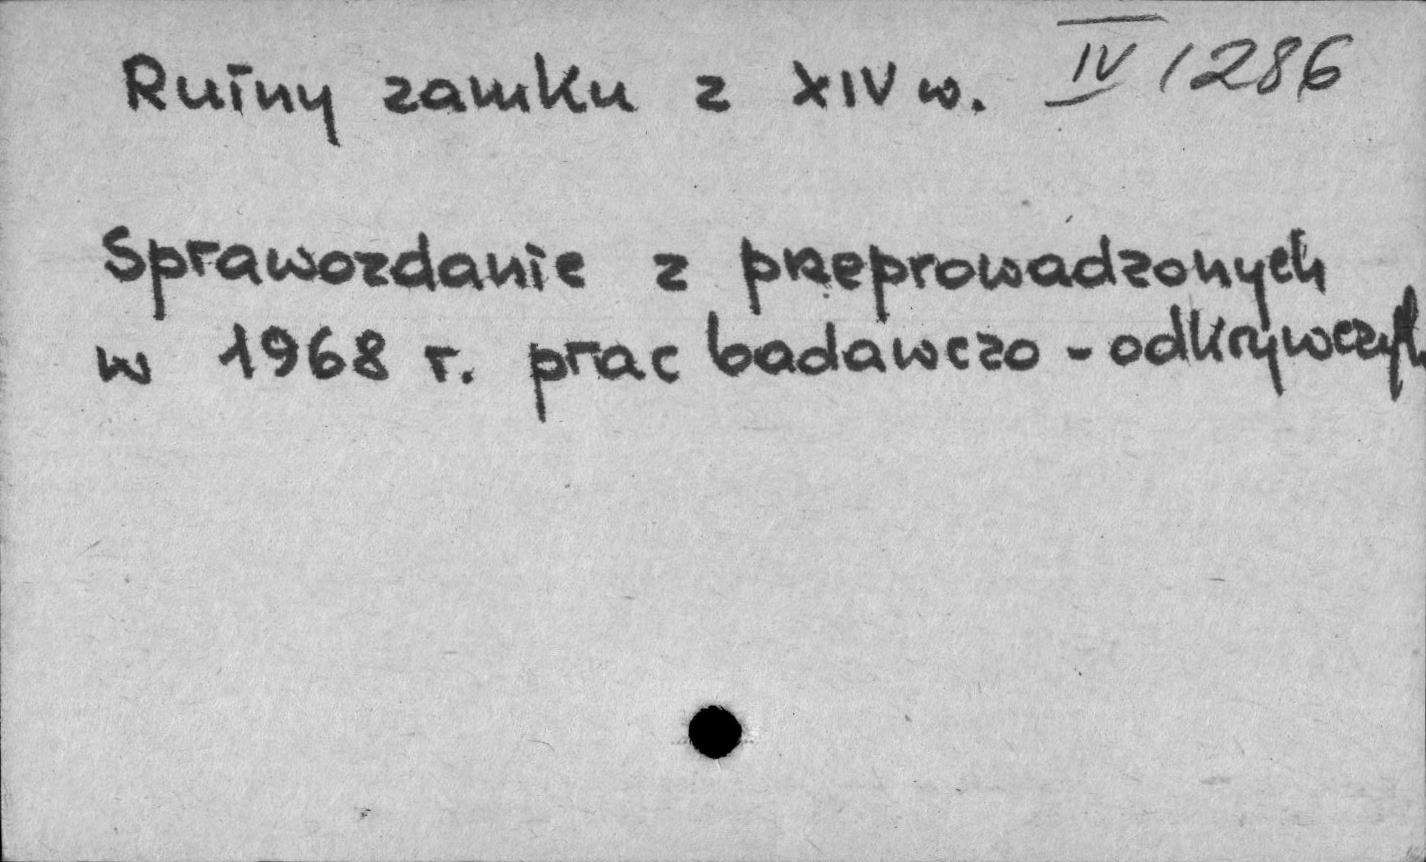 Ruiny zamku z XIV w. IV/286
Sprawozdanie z przeprowadzonych
w 1968 r. prac badawczo-odkrywczych